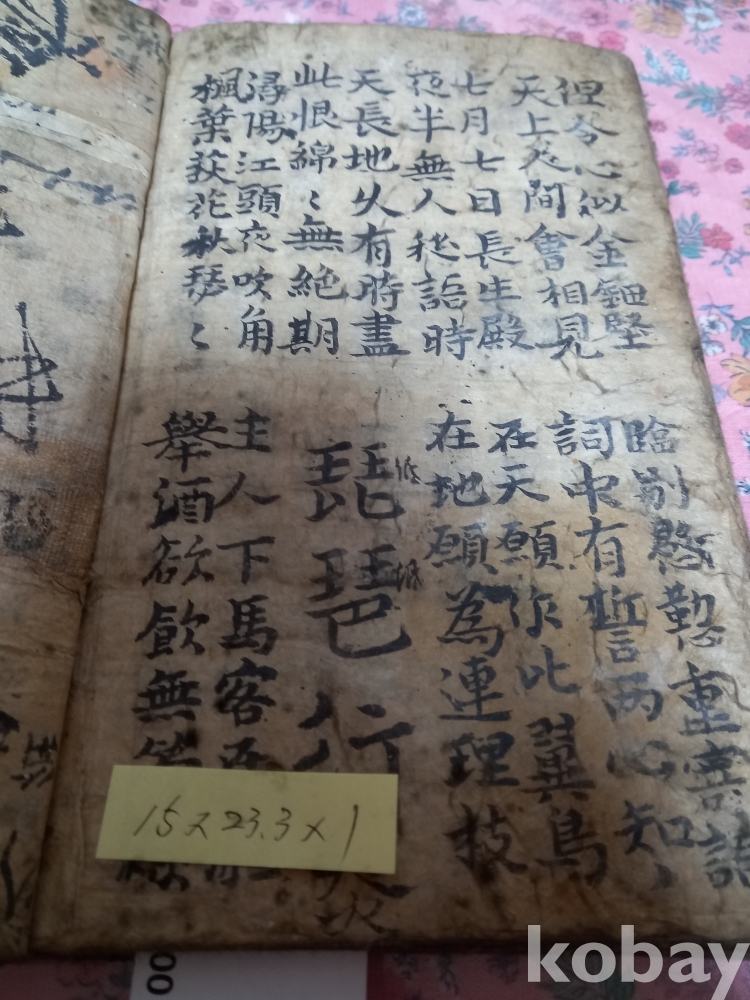 但令心似金鈿堅
天上人間會相見
臨別慇懃重寄詞
詞中有誓兩心知
七月七日長生殿
夜半無人私語時
在天願作比翼鳥
在地願為連理技
天長地久有時盡
此恨綿〻無絶期
琵琶行
潯陽江頭夜吹角
楓葉荻花秋瑟〻
主人下馬客
舉酒欲飮無
15 x 23.3 x 1
kobay